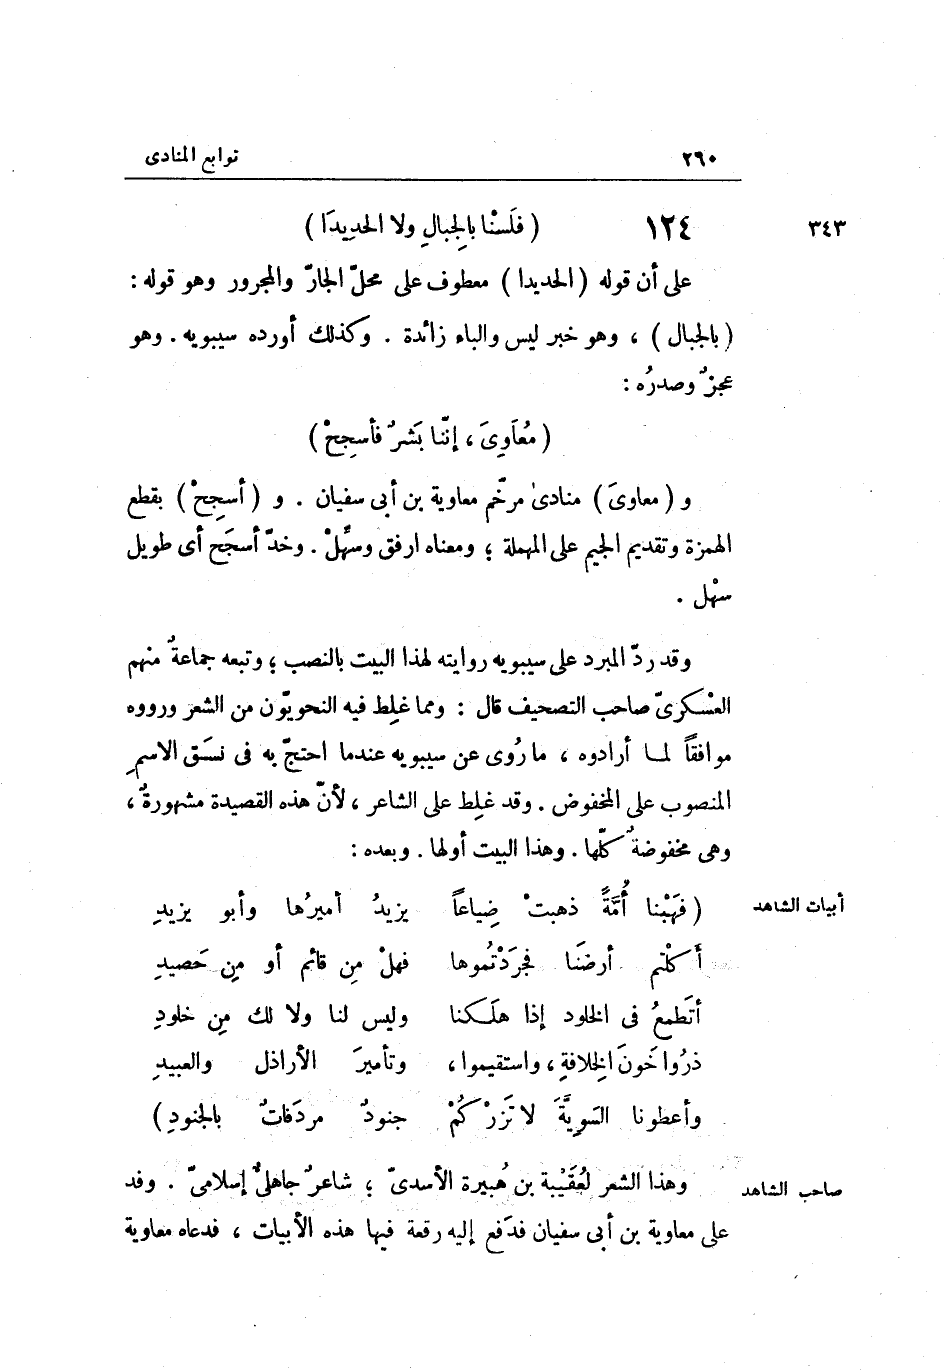 ٢٦٠ توابع المنادى
٣٤٣ ١٢٤ ( فلَسْنا بالِجبالِ ولا الحديدَا )
على أن قوله ( الحديدا ) معطوف على محلّ الجارّ والمجرور وهو قوله :
( بالجبال ) ، وهو خبر ليس والباء زائدة . وكذلك أورده سيبويه . وهو
عجزٌ وصدرُه :
( مُعاوِىَ ، إنّنا بَشرٌ فأسجِحْ )
و ( معاوىَ ) منادىٰ مرخّم معاوية بن أبى سفيان . و ( أسجِحْ ) بقطع
الهمزة وتقديم الجيم على المهملة ؛ ومعناه ارفق وسهِّلْ . وخدّ أسجَح أى طويل
سهْل .
وقد ردّ المبرد على سيبويه روايته لهذا البيت بالنصب ؛ وتبعه جماعةٌ منهم
العسْكرىّ صاحب التصحيف قال : ومما غلِط فيه النحويّون من الشعر ورووه
موافقاً لما أرادوه ، ما رُوى عن سيبويه عندما احتجّ به فى نسَق الاسمِ
المنصوب على المخفوض . وقد غلِط على الشاعر ، لأنّ هذه القصيدة مشهورةٌ ،
وهى مخفوضةٌ كلّها . وهذا البيت أولها . وبعده :
أبيات الشاهد ( فهَبْنا أُمَّةً ذهبتْ ضِياعاً يزيدُ أميرُها وأبو يزيدِ
أَكلتم أرضَنا فجرَدْتُموها فهلْ مِن قائم أو مِن حَصيدِ
أتَطمعُ فى الخلود إذا هلَكنا وليس لنا ولا لك مِن خلودِ
ذرُوا خَونَ الِخلافةِ ، واستقيموا ، وتأميرَ الأراذل والعبيدِ
وأعطونا السَّوِيَّةَ لا تَزرْكُمْ جنودٌ مردَفاتٌ بالجنودِ )
صاحب الشاهد وهذا الشعر لعُقَيْبة بن هُبيرة الأسدىّ ؛ شاعرٌ جاهلىٌّ إسلامىّ . وفد
على معاوية بن أبى سفيان فدَفع إليه رقعة فيها هذه الأبيات ، فدعاه معاوية